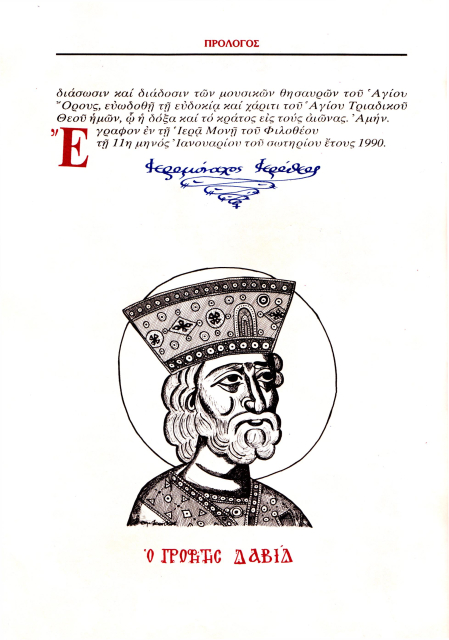 ΠΡΟΛΟΓΟΣ
διάσωσιν καί διάδοσιν τῶν μουσικῶν θησαυρῶν τοῦ Ἁγίου
Ὄρους, εὐωδοθῇ τῇ εὐδοκίᾳ καί χάριτι τοῦ Ἁγίου Τριαδικοῦ
Θεοῦ ἡμῶν, ᾧ ἡ δόξα καί τό κράτος εἰς τούς αἰῶνας. Ἀμήν.
Ἔγραφον ἐν τῇ Ἱερᾷ Μονῇ τοῦ Φιλοθέου
τῇ 11η μηνός Ἰανουαρίου τοῦ σωτηρίου ἔτους 1990.
Ἱερομόναχος Ἱερόθεος
Ὁ ΠΡΟΦΗΤΗΣ ΔΑΒΙΔ